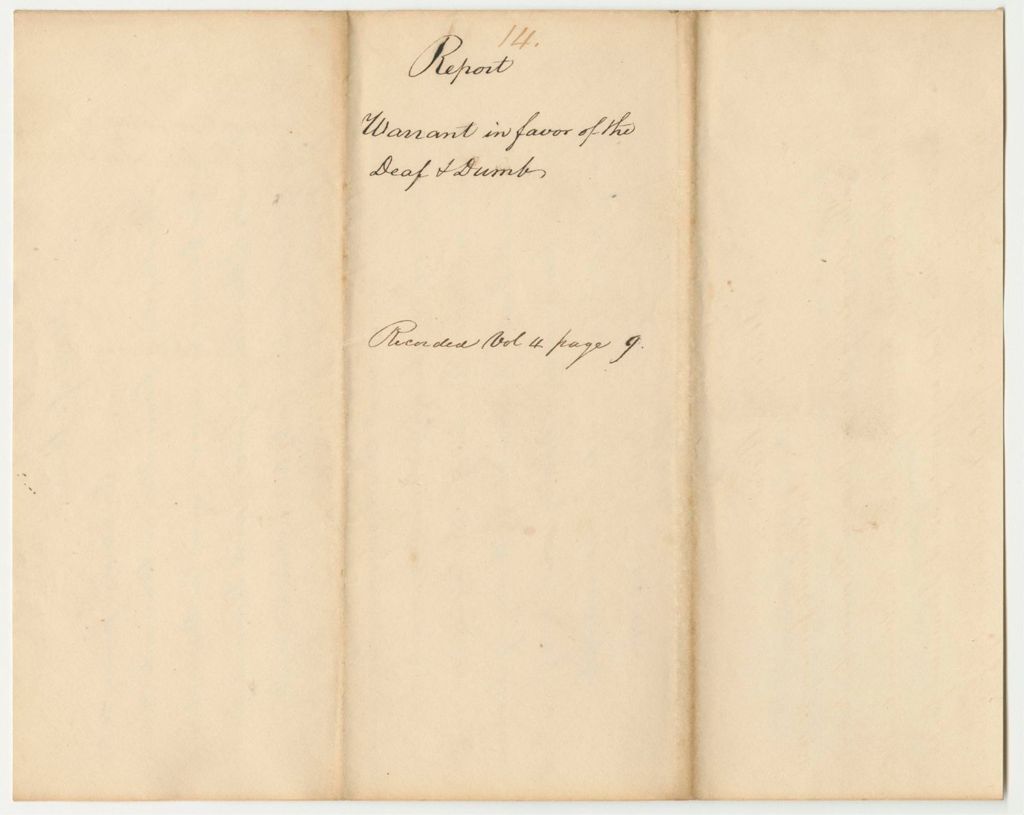 14.
Report
Warrant in favor of the
Deaf & Dumb
Recorded Vol 4 page 9.